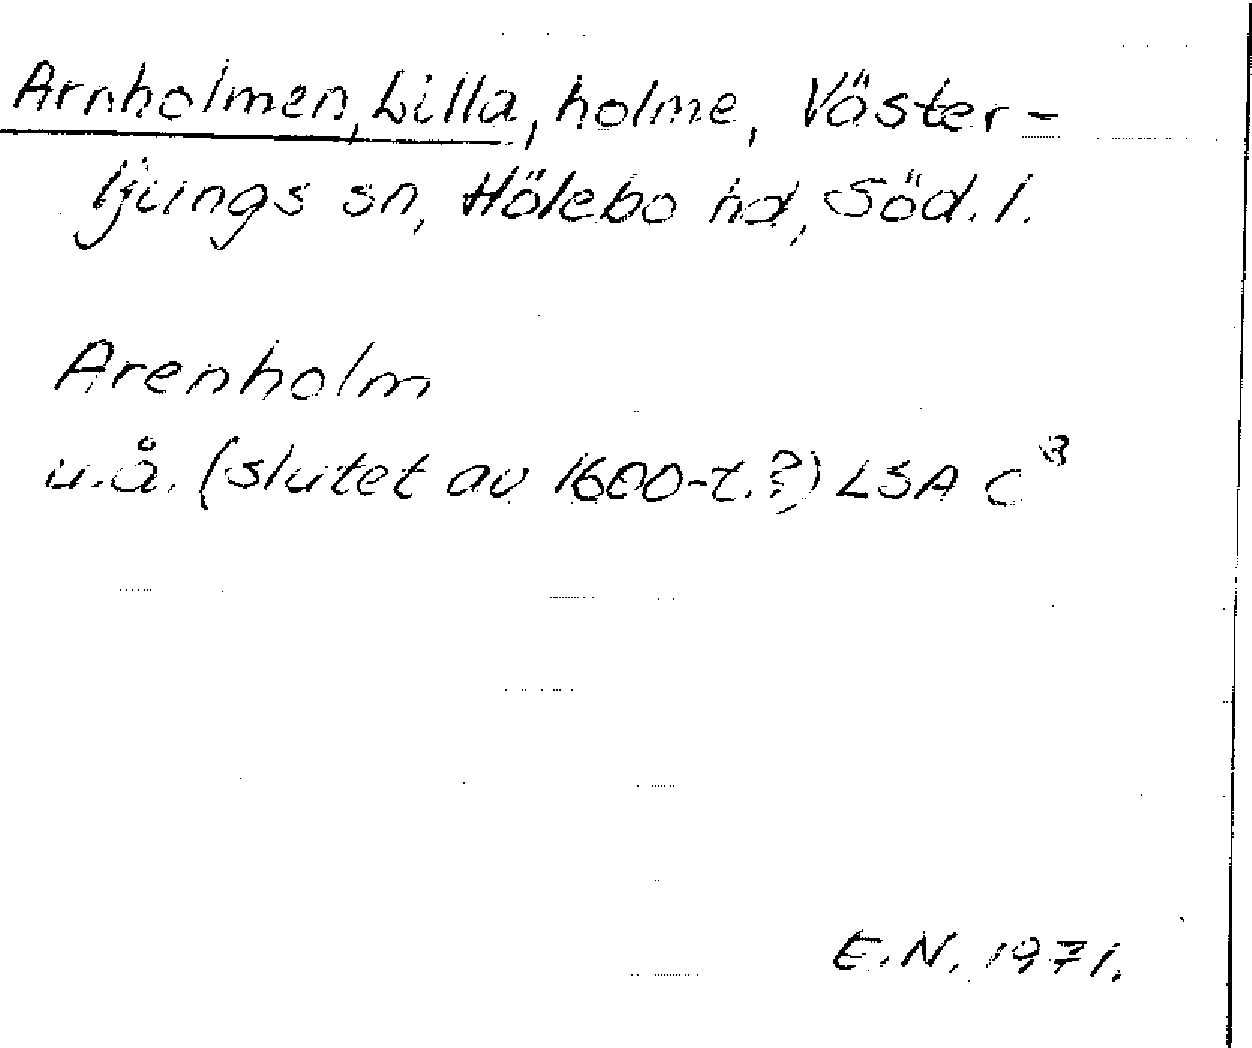 Arnholmen, Lilla, holme, Väster-
ljungs sn, Hölebo hd, Söd. l.
Arenholm
u.å. (slutet av 1600-t.?) LSA C⁸
E.N. 1971.